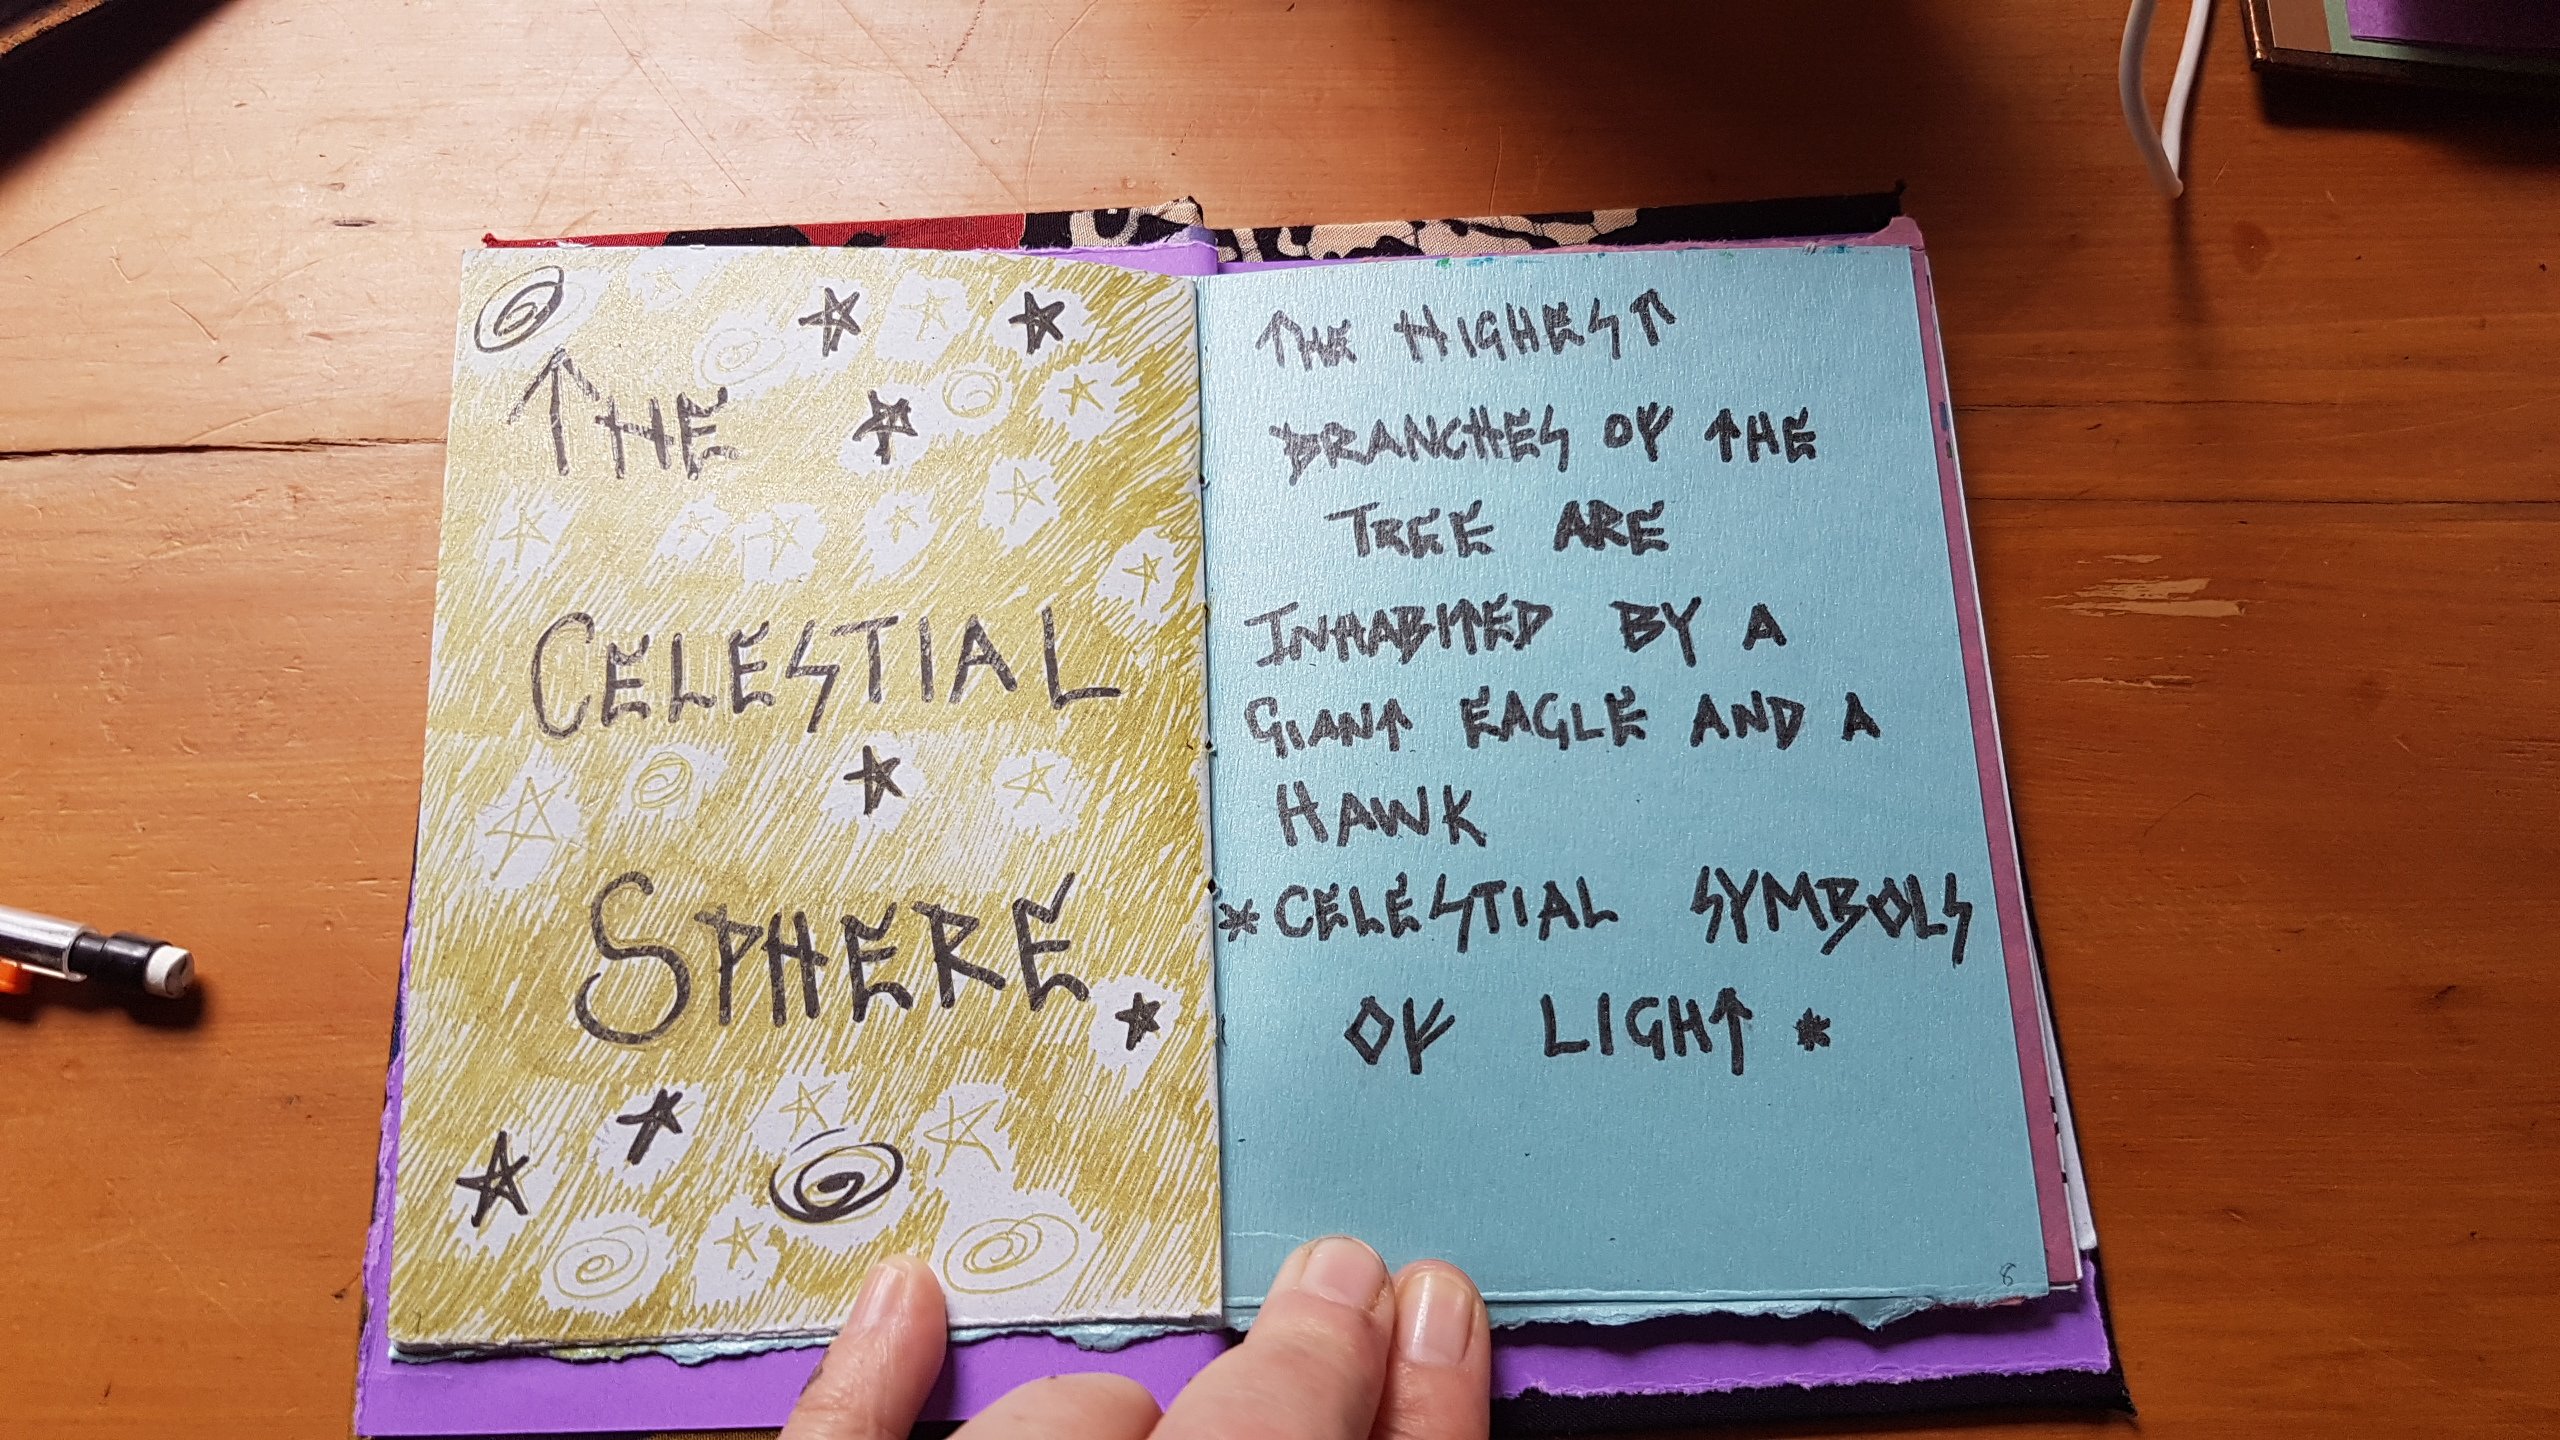 THE
CELESTIAL
SPHERE
THE HIGHEST
BRANCHES OF THE
TREE ARE
INHABITED BY A
GIANT EAGLE AND A
HAWK
*CELESTIAL SYMBOLS
OF LIGHT *
8